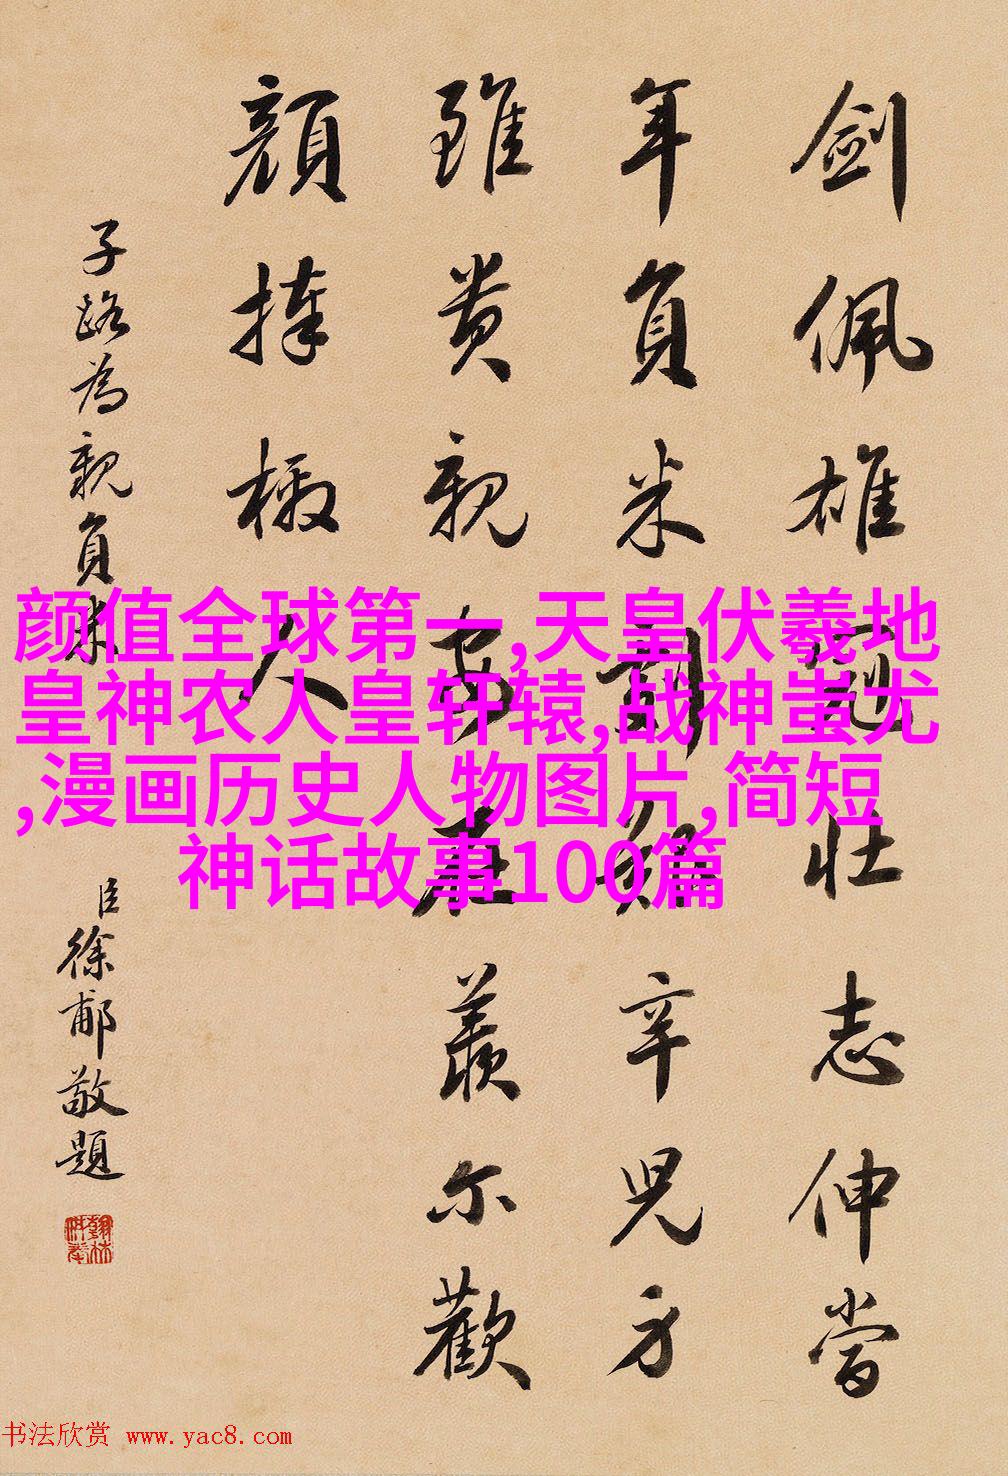 劍佩雄冠壯志伸當
年負米劇艱辛兒方
雖貴親安在羨爾歡
顏捧檄人
子路為親負米
臣徐郙敬題
颜值全球第一,天皇伏羲地
皇神农人皇轩辕,战神蚩尤
,漫画历史人物图片,简短
神话故事100篇
书法欣赏 www.yac8.com